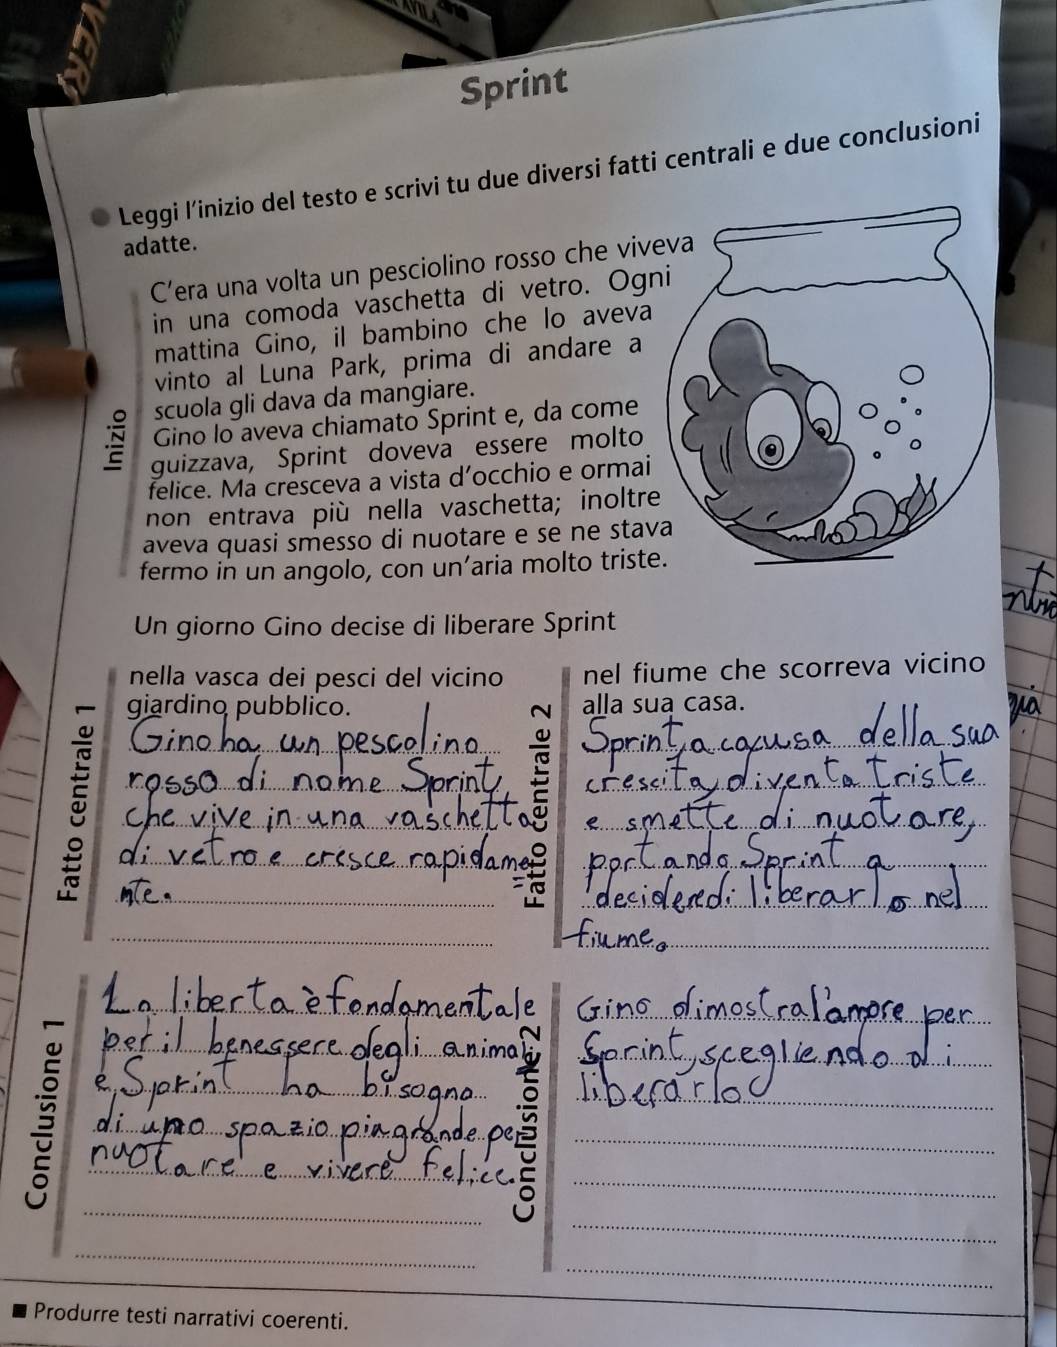 AVILA
Sprint
Leggi l'inizio del testo e scrivi tu due diversi fatti centrali e due conclusioni
adatte.
Inizio
C'era una volta un pesciolino rosso che viveva
in una comoda vaschetta di vetro. Ogni
mattina Gino, il bambino che lo aveva
vinto al Luna Park, prima di andare a
scuola gli dava da mangiare.
Gino lo aveva chiamato Sprint e, da come
guizzava, Sprint doveva essere molto
felice. Ma cresceva a vista d'occhio e ormai
non entrava più nella vaschetta; inoltre
aveva quasi smesso di nuotare e se ne stava
fermo in un angolo, con un'aria molto triste.
Un giorno Gino decise di liberare Sprint
Fatto centrale 1
nella vasca dei pesci del vicino
giardino pubblico.
Gino ha un pescolino
rosso di nome Sprint,
che vive in una vaschetta
di vetro e cresce rapidame
nte.
Fatto centrale 2
nel fiume che scorreva vicino
alla sua casa.
Sprint, a cacusa della sua
crescita, diventa triste
e smette di nuotare,
portando Sprint a
decidered: liberarlo nel
fiume.
Conclusione 1
La liberta è fondamentale
per il benessere degli animali
e Sprint ha bisogno
di uno spazio più grande per
nuotare e vivere felice.
Conclusione 2
Gino dimostra l'amore per
Sprint, scegliendo di
liberarlo
Produrre testi narrativi coerenti.
già